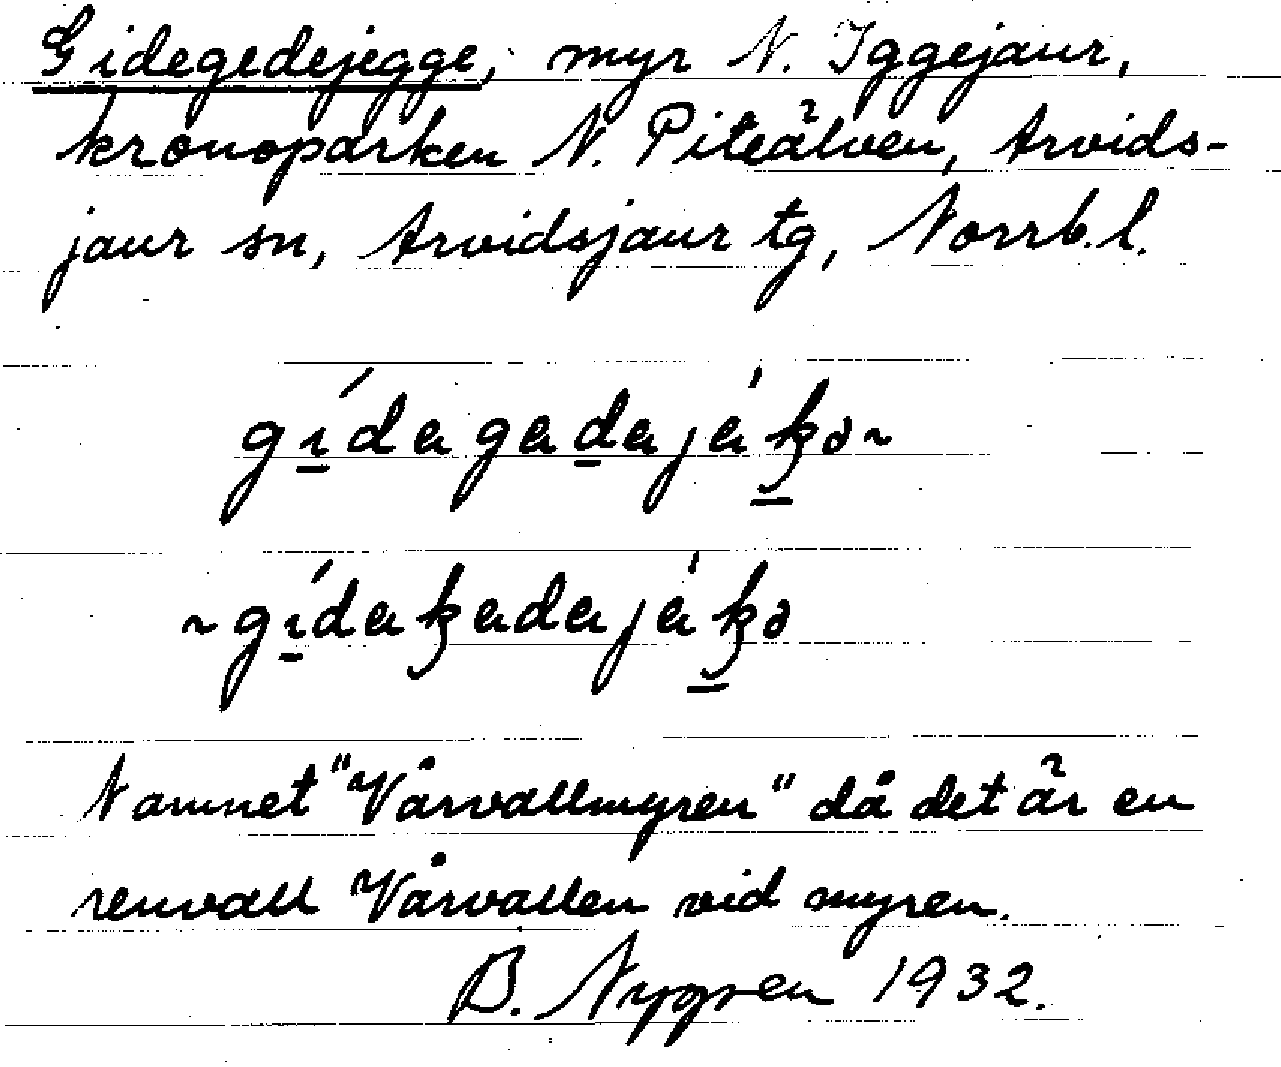 Gidegedejegge, myr N. Iggejaur,
kronoparken N. Piteälven, Arvids-
jaur sn, Arvidsjaur tg, Norrb. l.
gı̱́dagaḏajáḵ̡ə~
~gı̱́dak̡adajáḵ̡ə
Namnet "Vårvallmyren" då det är en
renvall Vårvallen vid myren.
B. Nygren 1932.